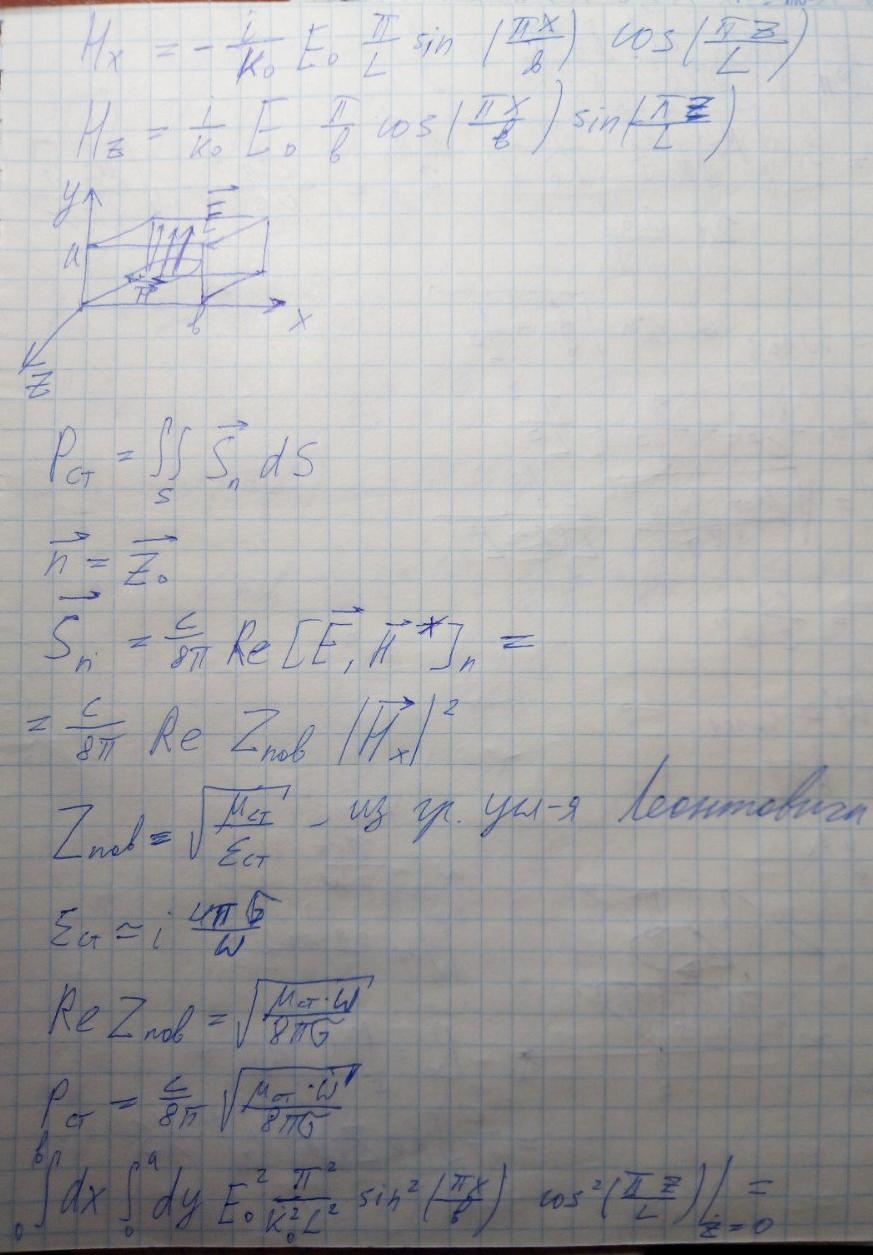 Hₓ = - i/k₀ E₀ π/L sin (πx/b) cos(πz/L)
H_z = i/k₀ E₀ π/b cos(πx/b) sin(πz/L)
y
E⃗
a
b
x
z
P_ст = ∬_S S⃗ₙ dS
n⃗ = z⃗₀
S⃗ₙ = c/8π Re [E⃗, H⃗*]ₙ =
= c/8π Re Z_пов |H⃗ₓ|²
Z_пов = √(μ_ст/ε_ст) - из гр. усл-я Леонтовича
ε_ст ≃ i 4πσ/ω
Re Z_пов = √(μ_ст·ω/8πσ)
P_ст = c/8π √(μ_ст·ω/8πσ)
∫₀ᵇ dx ∫₀ᵃ dy E₀² π²/k₀²L² sin²(πx/b) cos²(πz/L)|_z=0 =